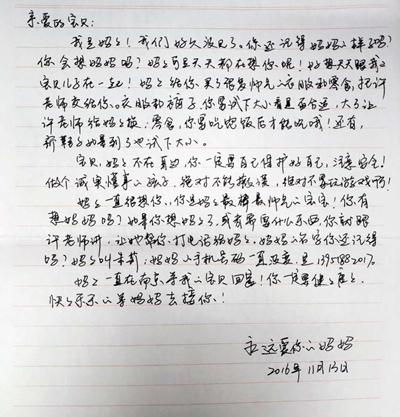 亲爱的宝贝:
我是妈妈!我们好久没见了。你还记得妈妈的样子吗?
你会想妈妈吗?妈妈可是天天都在想你呢!好想天天跟我的
宝贝儿子在一起!妈妈给你买了很多帅气的衣服和零食,托许
老师交给你。衣服和裤子,你要试下大小看是否合适,大了让
许老师给妈妈换;零食,你要吃完饭后才能吃哦!还有,
新鞋子如果到了也试下大小。
宝贝,妈妈不在身边,你一定要自己保护好自己,注意安全!
做个诚实懂事的孩子,绝对不能撒谎,绝对不要玩游戏啊!
妈妈一直很想你,你是妈妈最棒最帅气的宝宝!你有
想妈妈吗?如果你想妈妈了,或者需要什么东西你就跟
许老师讲,让她帮你打电话给妈妈。妈妈的名字你还记得
吗?妈妈叫
妈妈的手机号码一直没变,是
妈妈一直在南京等我的宝贝回家!你一定要健健康康、
快快乐乐的等妈妈去接你!
永远爱你的妈妈
2016年11月13日